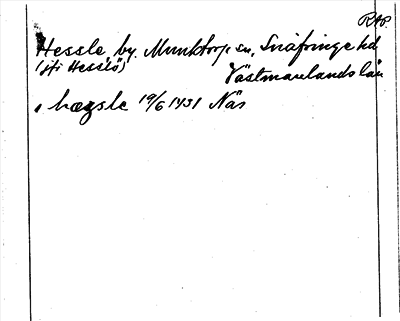 RAP.
Hessle by. Munktorp sn, Snäfringe hd
(jfr Hesslö) Västmanlands län
i hægsle 19/6 1431 Näs